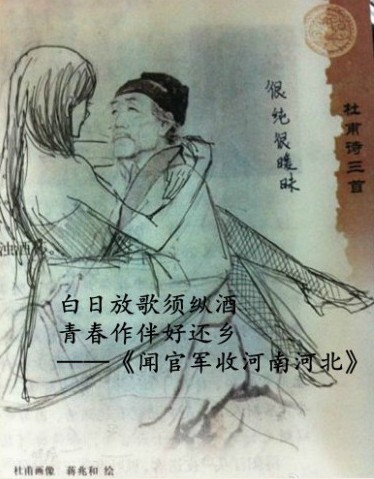 杜甫诗三首
很纯很暧昧
浊酒杯。
白日放歌须纵酒
青春作伴好还乡
——《闻官军收河南河北》
杜甫画像 蒋兆和 绘